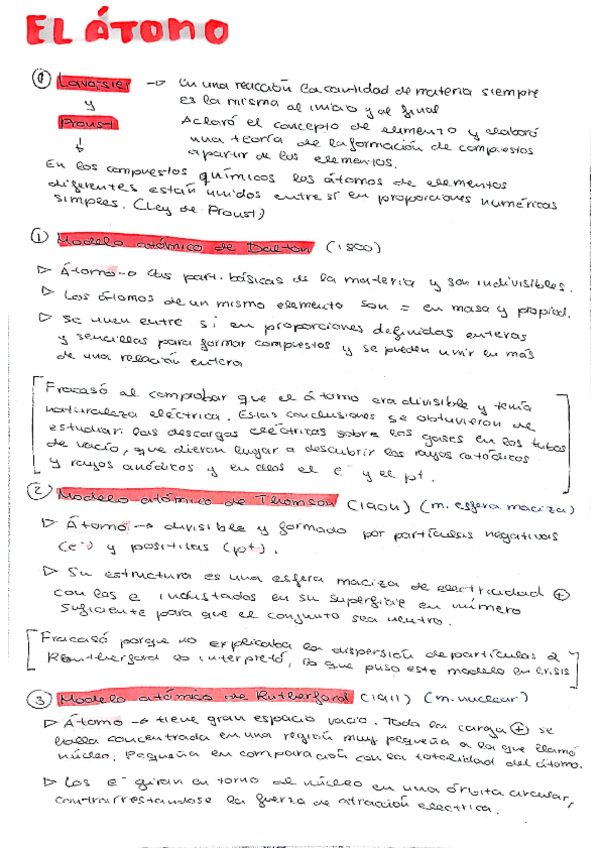 EL ÁTOMO
⓪ Lavoisier → En una reacción la cantidad de materia siempre
y es la misma al inicio y al final
Proust Aclaró el concepto de elemento y elaboró
↓ una teoría de la formación de compuestos
a partir de los elementos.
En los compuestos químicos los átomos de elementos
diferentes están unidos entre sí en proporciones numéricas
simples. (Ley de Proust)
① Modelo atómico de Dalton (1800)
▷ Átomo → part. básicas de la materia y son indivisibles.
▷ Los átomos de un mismo elemento son = en masa y propied.
▷ Se unen entre sí en proporciones definidas enteras
y sencillas para formar compuestos y se pueden unir en más
de una relación entera
[Fracasó al comprobar que el átomo era divisible y tenía
naturaleza eléctrica. Estas conclusiones se obtuvieron de
estudiar las descargas eléctricas sobre los gases en los tubos
de vacío, que dieron lugar a descubrir los rayos catódicos
y rayos anódicos y en ellos el e⁻ y el p+.]
② Modelo atómico de Thomson (1904) (m. esfera maciza)
▷ Átomo → divisible y formado por partículas negativas
(e⁻) y positivas (p+).
▷ Su estructura es una esfera maciza de electricidad ⊕
con los e⁻ incrustados en su superficie en número
suficiente para que el conjunto sea neutro.
[Fracasó porque no explicaba la dispersión de partículas α
Rutherford lo interpretó, lo que puso este modelo en crisis]
③ Modelo atómico de Rutherford (1911) (m. nuclear)
▷ Átomo → tiene gran espacio vacío. Toda la carga ⊕ se
halla concentrada en una región muy pequeña a la que llamó
núcleo. Pequeña en comparación con la totalidad del átomo.
▷ Los e⁻ giran en torno al núcleo en una órbita circular,
contrarrestandose la fuerza de atracción electrica.